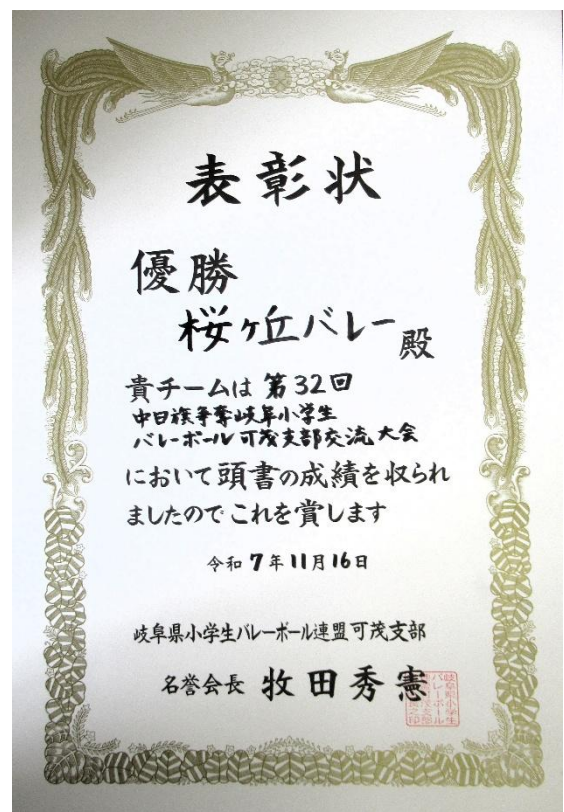 表彰状
優勝
桜ヶ丘バレー殿
貴チームは 第32回
中日旗争奪岐阜小学生
バレーボール可茂支部交流大会
において頭書の成績を収られ
ましたのでこれを賞します
令和7年11月16日
岐阜県小学生バレーボール連盟可茂支部
名誉会長 牧田秀憲